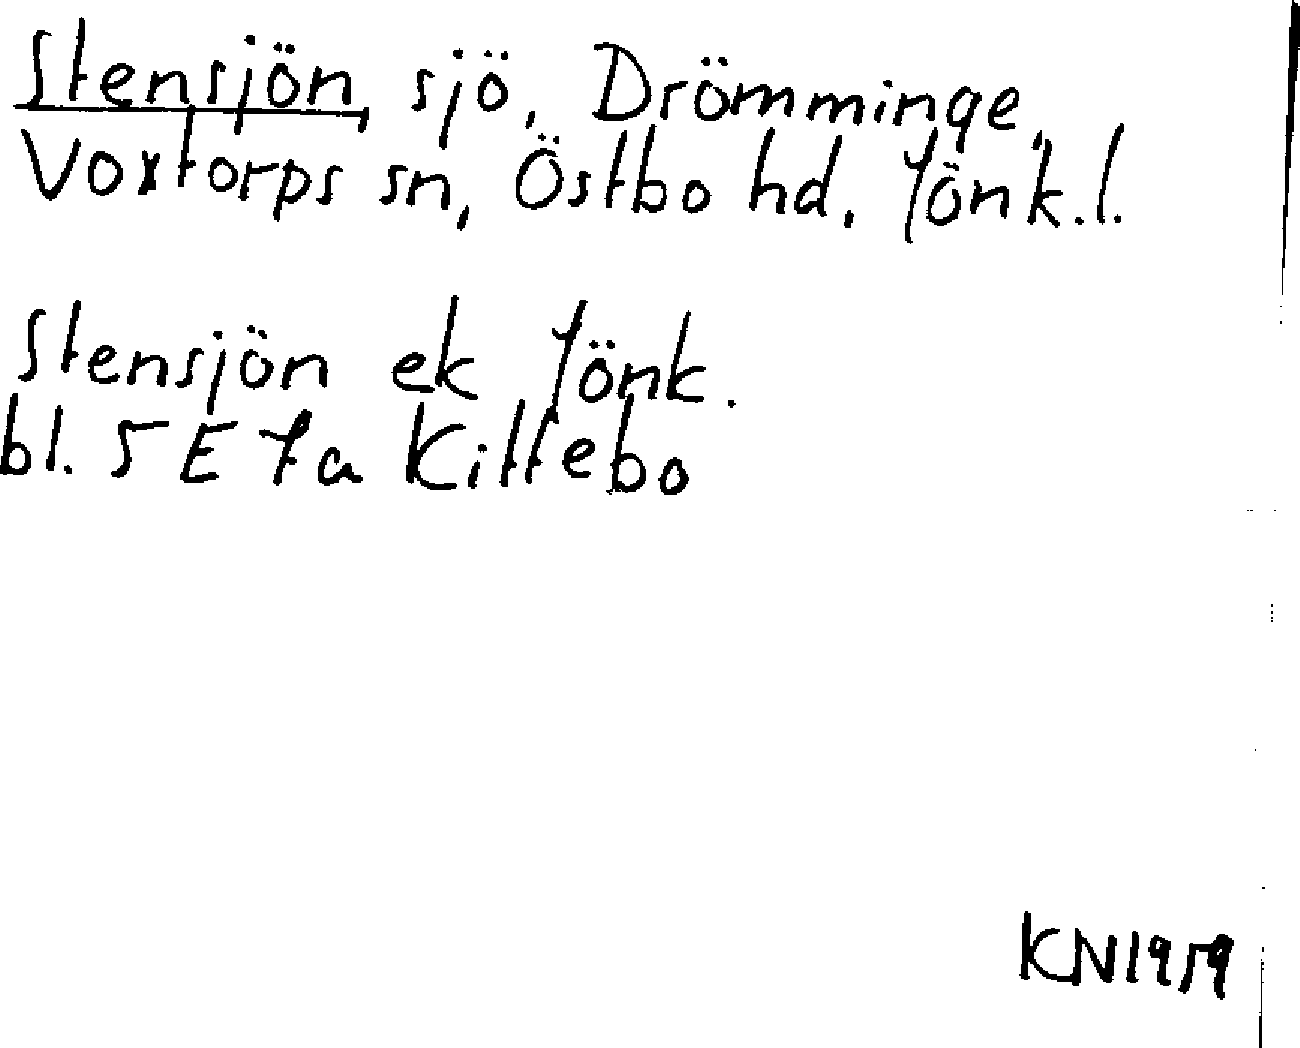 Stensjön, sjö, Drömminge,
Voxtorps sn, Östbo hd. Jönk.l.
Stensjön ek Jönk.
bl. 5 E 7a Kittebo
KN1959